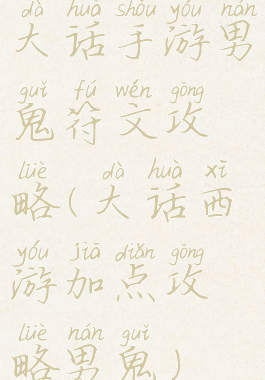 dà huà shǒu yóu nán
大话手游男
guǐ fú wén gōng
鬼符文攻
lüè dà huà xī
略(大话西
yóu jiā diǎn gōng
游加点攻
lüè nán guǐ
略男鬼)